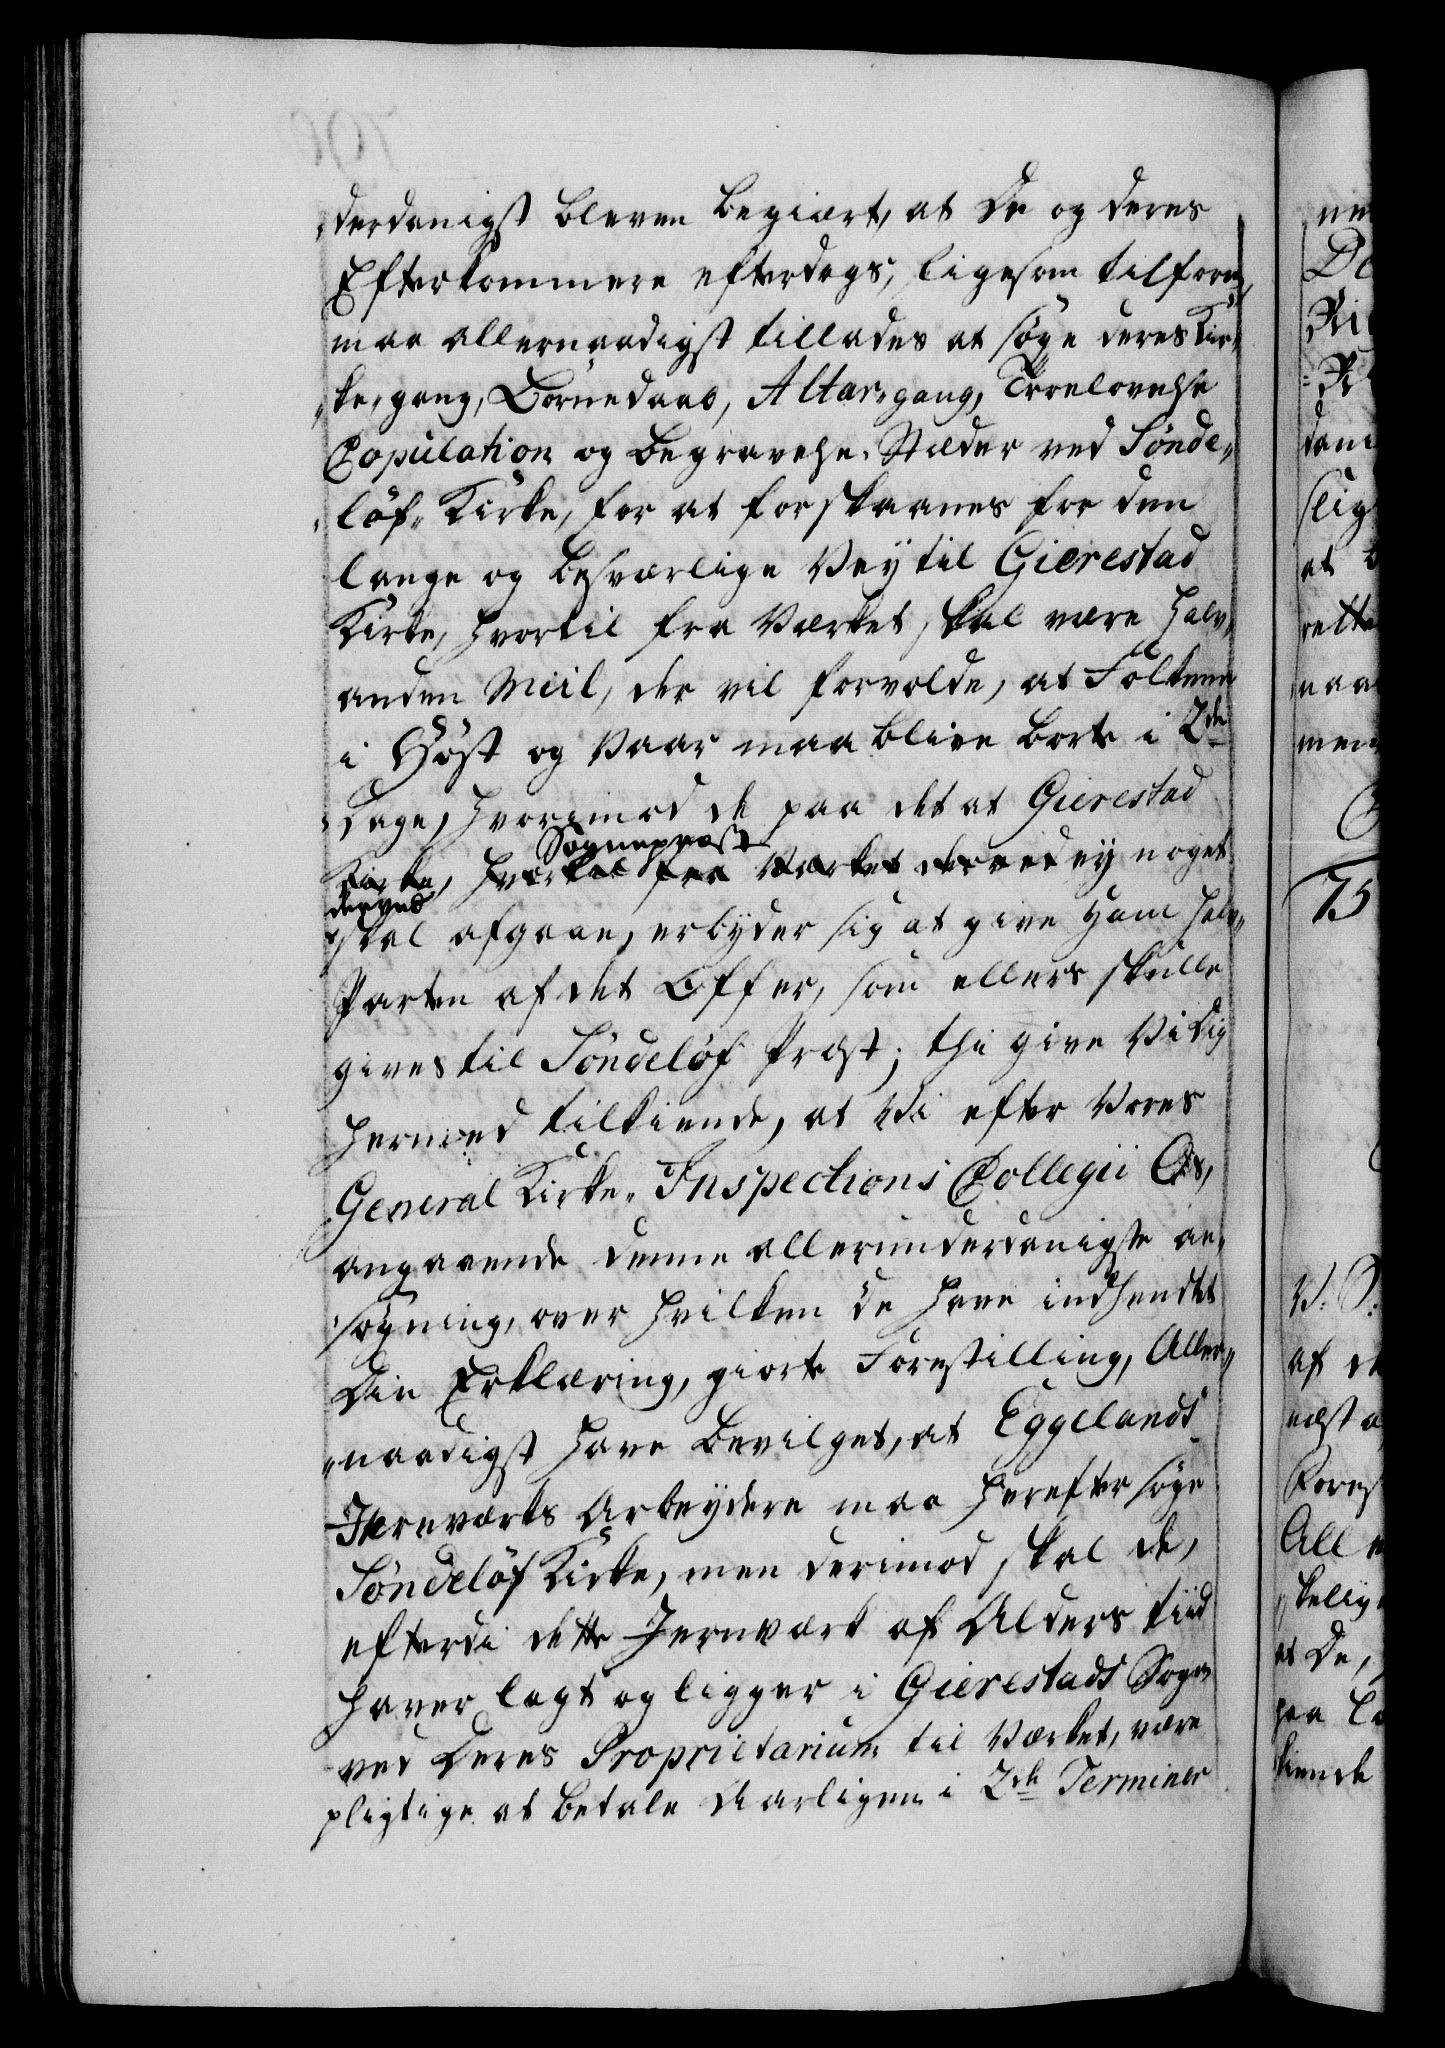 derdanigst bleven begiært, at de og deres
Efterkommere efterdags, ligesom tilforn,
maa allernaadigst tillades at søge deres Kir„
„ke,gang, Børnedaab, Altar„gang, Troelovelse
Copulation og begravelse-Stæder ved Sønde„
„løf„ Kirke, for at forskaanes for den
lange og besværlige Vey til Gierestad
Kirke, hvortil fra Værket skal være halv„
anden Miil, der vil forvolde, at Folkene
i Høst og Vaar maa blive borte i 2de
Dage, hvorimod de paa det at Gierestad
Sognepræst
Kirke, hvortil fra Værket derved ey noget
derved
skal afgaae, erbyder sig at give ham halv„
Parten af det Offer, som ellers skulle
gives til Søndeløf Præst; thi give Vi Dig
hermed tilkiende, at Vi efter Vores
General Kirke„ Inspections Collegii
angaaende denne allerunderdanigste an„
søgning, over hvilken de have indhendtet
Din Erklæring, giorte Forestilling, Aller„
„naadigst have bevilget, at Eggelands
Jernværks Arbeydere maa herefter søge
Søndeløf Kirke, men derimod skal de,
efterdi dette Jernværk af Alders tiid
haver lagt og ligger i Gierestads Sogn
ved Deres Proprietarium til Værket, være
pligtige at betale Aarligen i 2de Terminer
ne
De
dan
slig
at
rette
naa
men
75
af
næst
Fores
Alle
skelig
et De,
paa
kiende